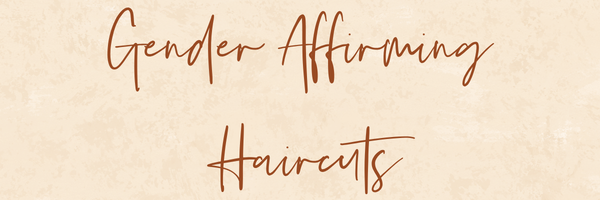 Gender Affirming
Haircuts